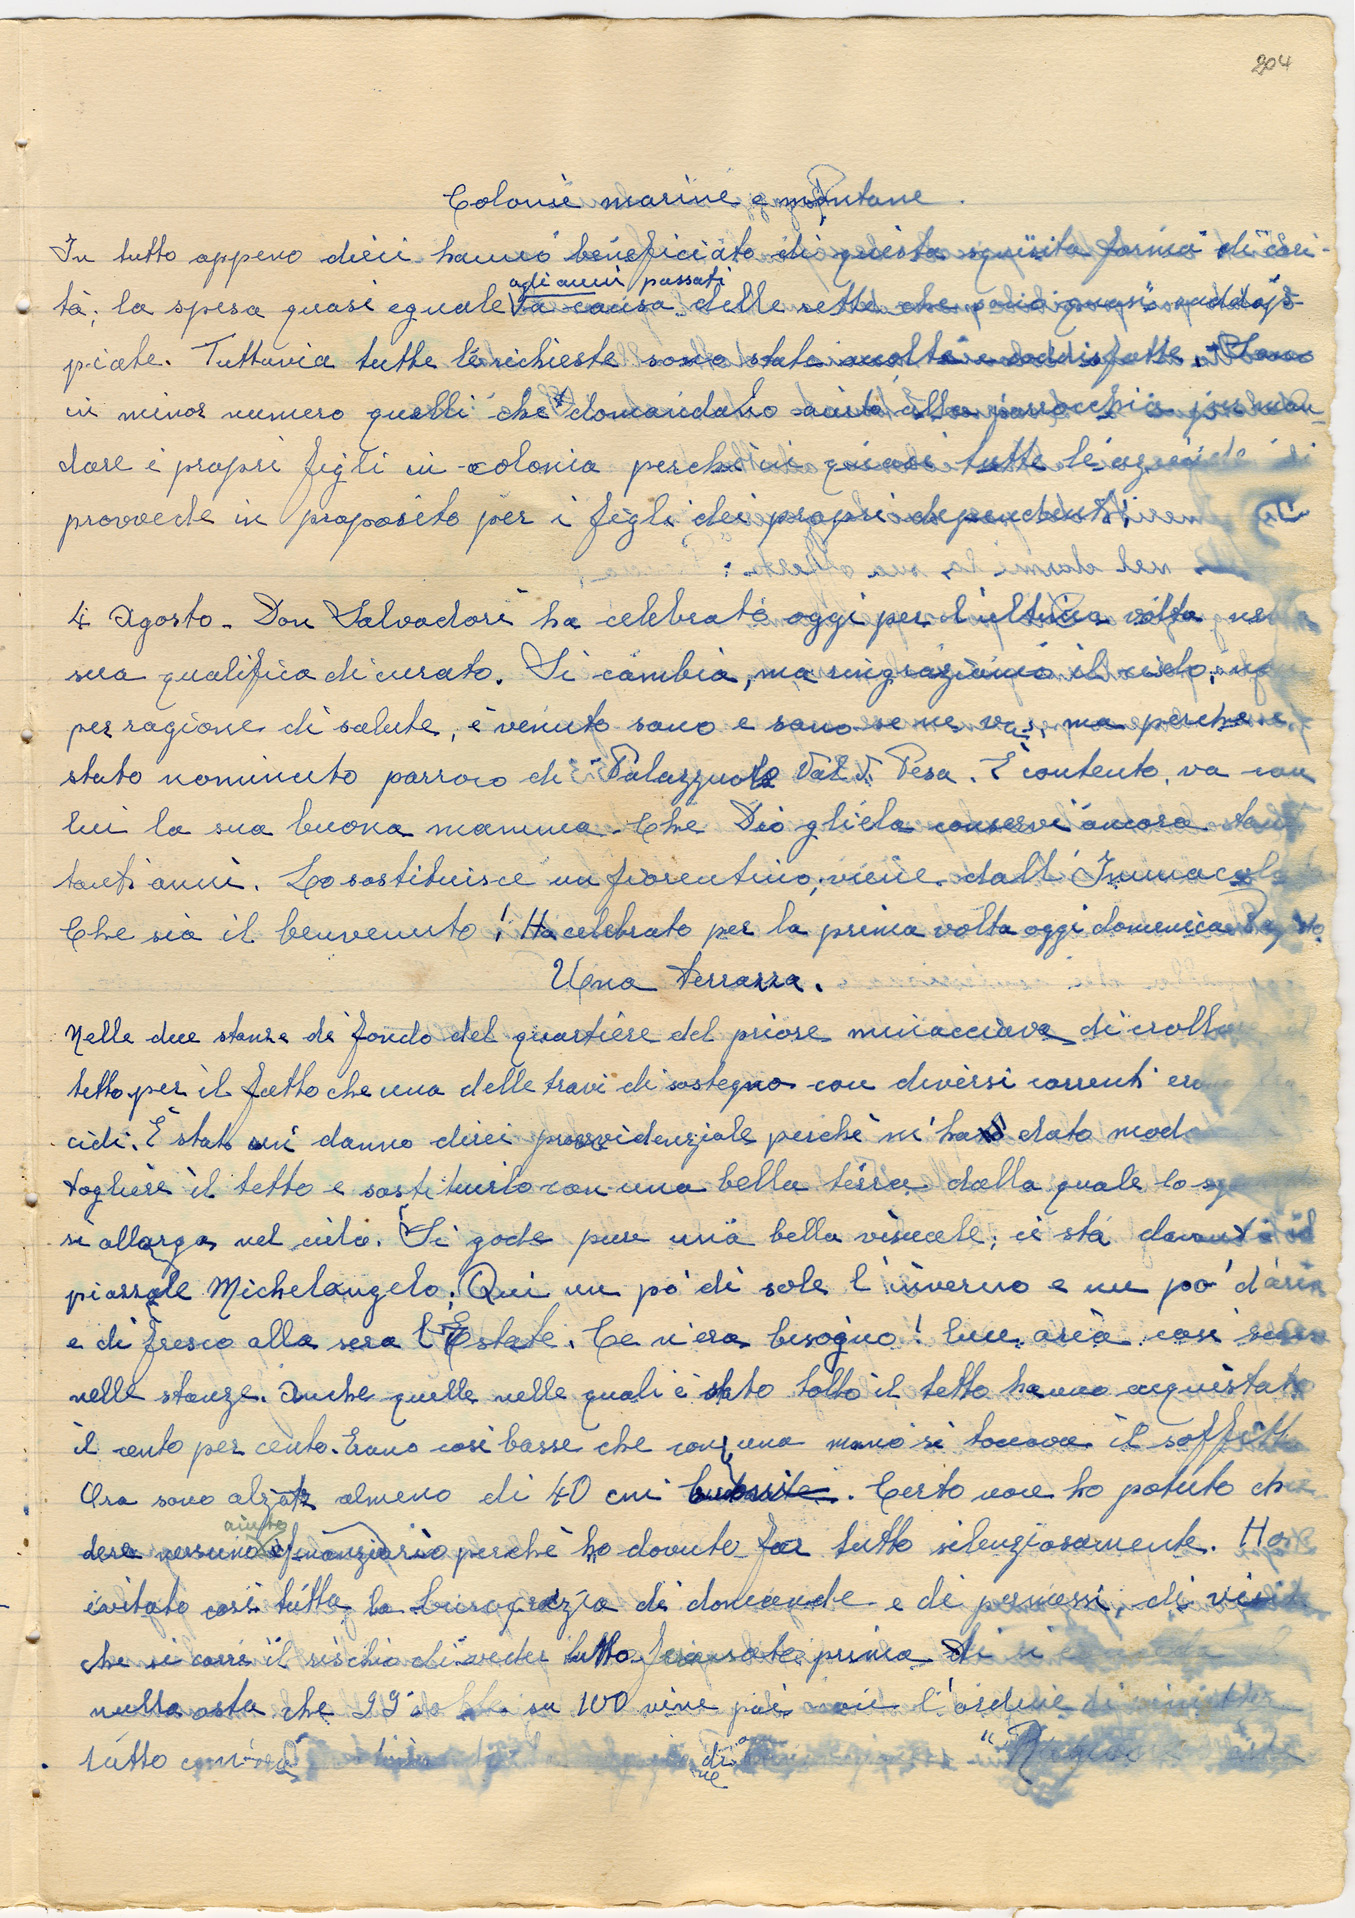 204
Colonie marine e montane.
In tutto appena dieci hanno beneficiato di questa squisita forma di cari-
agli anni passati
tà; la spesa quasi eguale a causa delle rette che sono quasi raddop-
piate. Tuttavia tutte le richieste sono state accolte e soddisfatte. Sono
in minor numero quelli che domandano aiuto alla parrocchia per man-
dare i propri figli in colonia perchè in quasi tutte le aziende si
provvede in proposito per i figli dei propri dipendenti.
4 Agosto - Don Salvadori ha celebrato oggi per l'ultima volta
sua qualifica di curato. Si cambia, ma ringraziamo il cielo, no
per ragione di salute, è venuto sano e sano se ne va, ma perchè è
stato nominato parroco di Palazzuolo Val di Pesa. È contento, va con
lui la sua buona mamma. Che Dio gliela conservi ancora tan
tanti anni. Lo sostituisce un fiorentino, viene dall'Immacol
Che sia il benvenuto! Ha celebrato per la prima volta oggi domenica
Una terrazza.
Nelle due stanze di fondo del quartiere del priore minacciava di croll
tetto per il fatto che una delle travi di sostegno con diversi correnti
cidi. È stato un danno direi provvidenziale perchè m'ha dato mod
togliere il tetto e sostituirlo con una bella terra dalla quale lo
si allarga nel cielo. Si gode pure una bella visuale; ci sta davanti il
piazzale Michelangelo. Qui un po' di sole l'inverno e un po' d'aria
e di fresco alla sera l'Estate. Ce n'era bisogno! luce aria così
nelle stanze. Anche quelle nelle quali è stato tolto il tetto hanno acquistato
il cento per cento. Erano così basse che con una mano si toccava il soffitt
Ora sono alzate almeno di 40 cm. Certo non ho potuto chie
aiuto
dere nessuno finanziario perchè ho dovuto far tutto silenziosamente. Ho
evitato così tutta la burocrazia di domande e di permessi, di visit
che si corre il rischio di veder tutto prima di
nulla osta che 99 su 100 viene poi l'ordine di
tutto